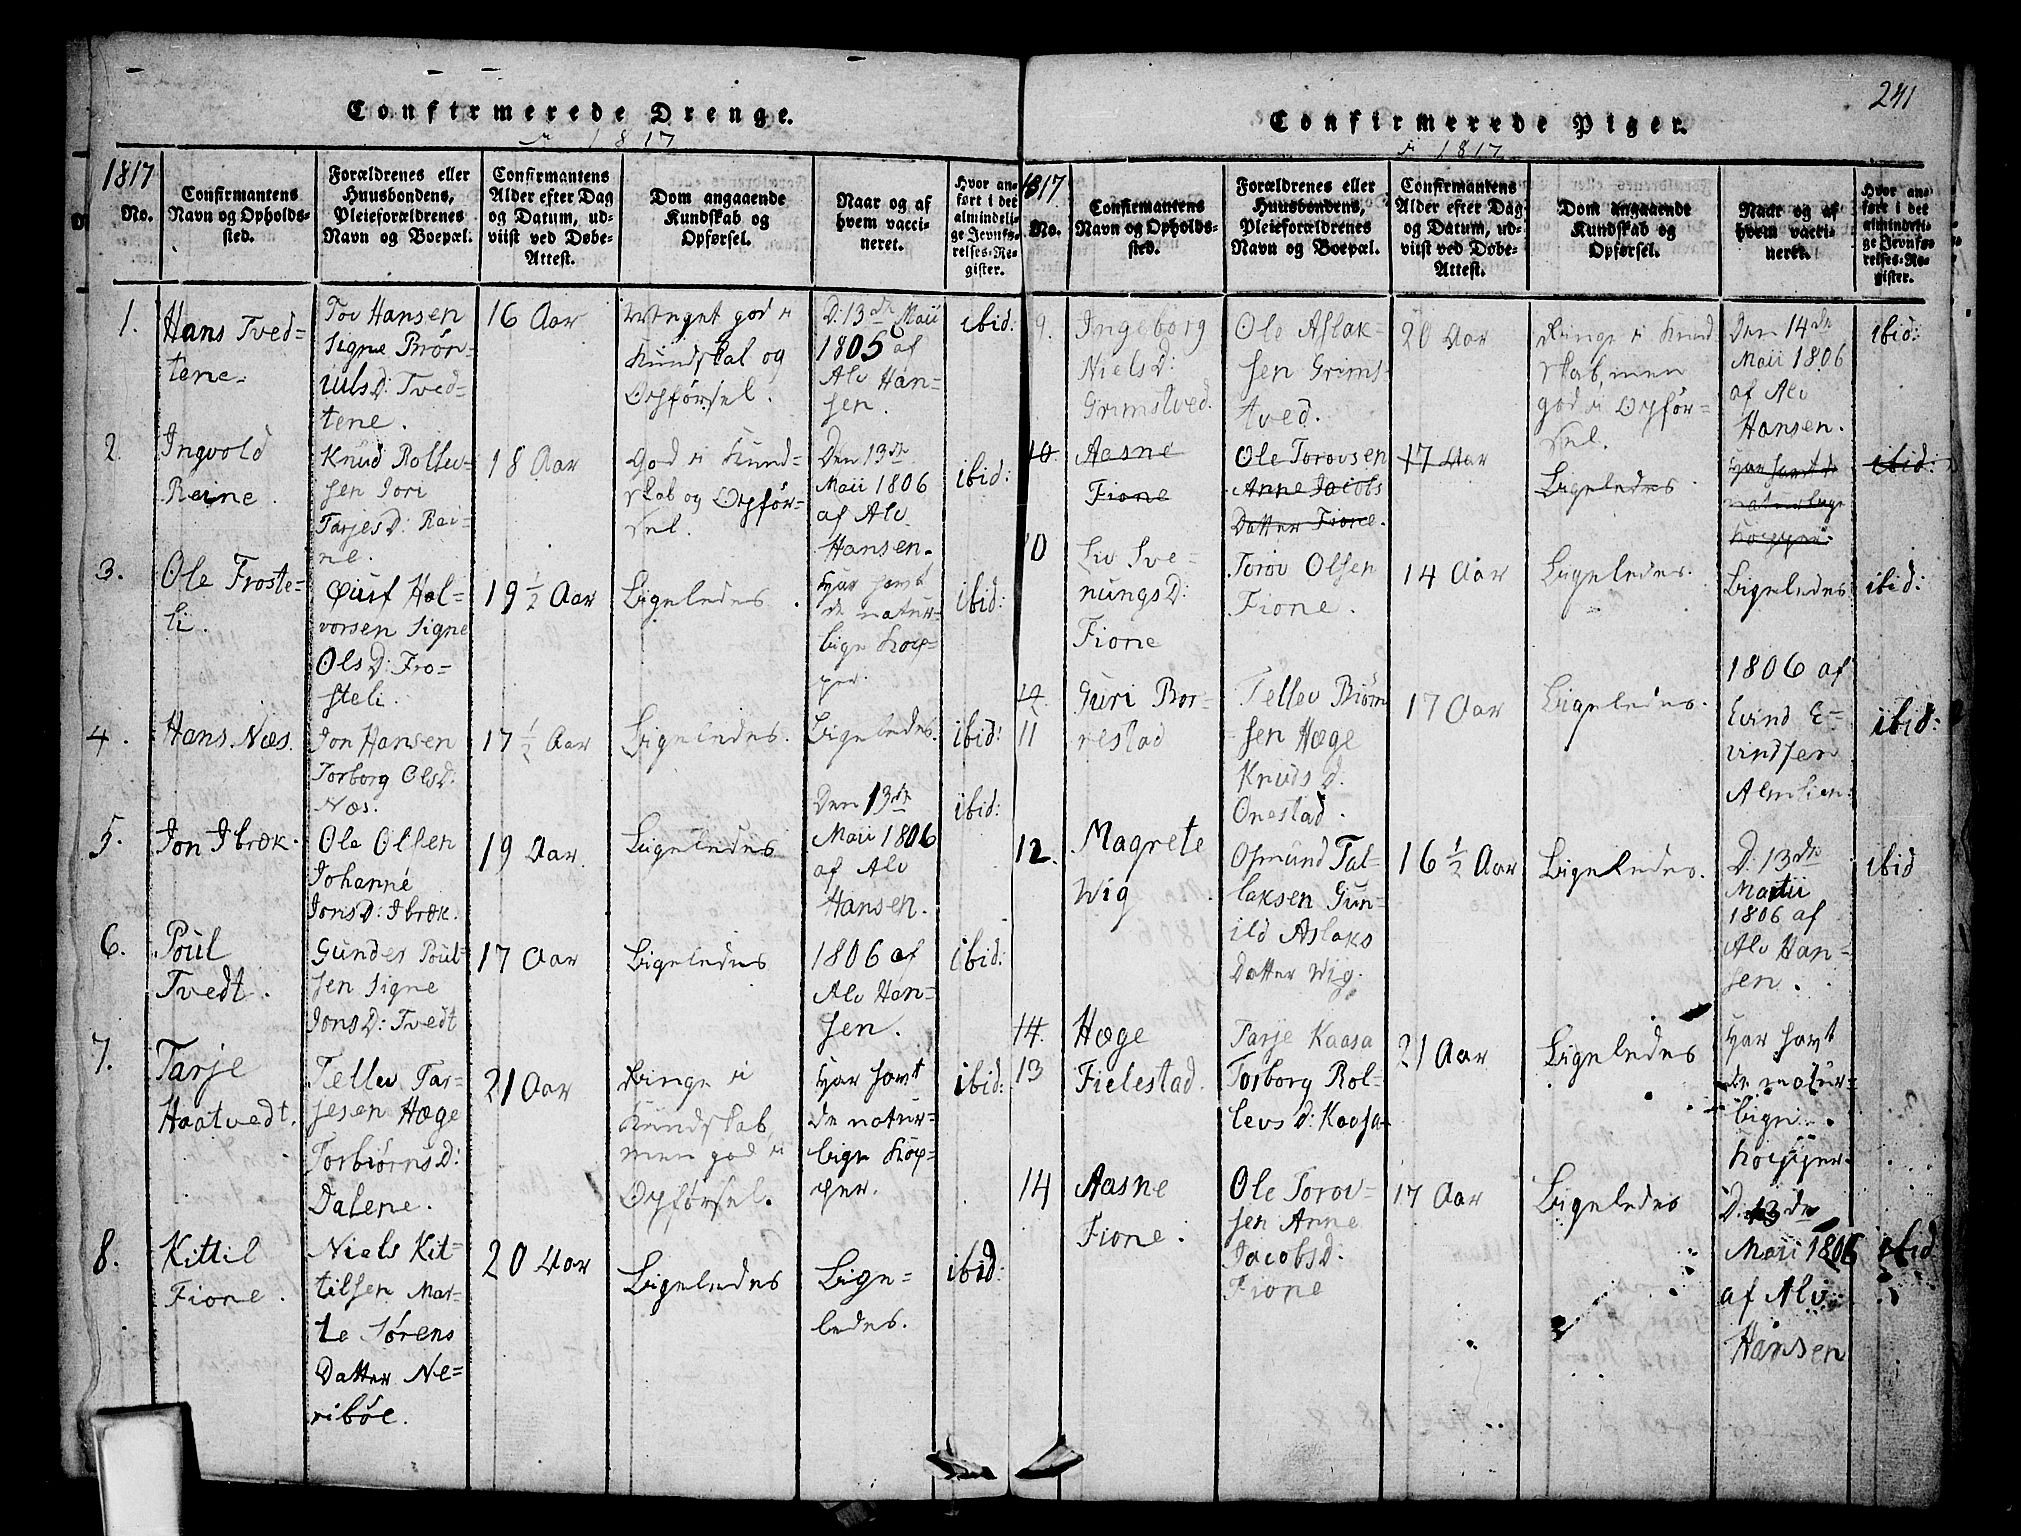 241
Confirmerede Drenge.
1817
1817
No.
Confirmantens
Navn og Opholds-
sted.
Forældrenes eller
Huusbondens,
Pleieforældrenes
Navn og Boepæl.
Confirmantens
Alder efter Dag
og Datum, ud-
viist ved Døbe-
Attest.
Dom angaaende
Kundskab og
Opførsel.
Naar og af
hvem vacci-
neret.
Hvor an-
ført i det
almindeli-
ge Jevnfø-
relses-Re-
gister.
1.
Hans Tved=
tene.
Tov Hansen
Signe Brøn-
iulsD: Tved-
tene.
16 Aar
Meget god i
Kundskab og
Opførsel.
D: 13de Maii
1805 af
Alv Han=
sen.
ibid:
2.
Ingvold
Reine.
Knud Rollev=
sen Jori
TarjesD: Rei=
ne.
18 Aar
God i Kund=
skab og Opfør=
sel.
Den 13de
Maii 1806
af Alv
Hansen.
ibid:
3.
Ole Froste=
li.
Hal=
vorsen Signe
OlsD: Fro=
steli.
19 ½ Aar
Ligeledes.
Har havt
de natur=
lige Kop=
per.
ibid:
4.
Hans Næs.
Jon Hansen
Torborg OlsD:
Næs.
17 ½ Aar
Ligeledes.
Ligeledes.
ibid:
5.
Jon Ibræk.
Ole Olsen
Johanne
JonsD: Ibræk.
19 Aar.
Ligeledes
Den 13de
Maii 1806
af Alv
Hansen.
ibid:
6.
Poul
Tvedt.
Gunder Poul=
sen Signe
JonsD: Tvedt
17 Aar
Ligeledes
1806 af
Alv Han=
sen.
ibid:
7.
Tarje
Haatvedt.
Tellev Tar=
jesen Hæge
TorbiørnsD:
Dalene.
21 Aar
Ringe i
Kundskab,
men god i
Opførsel.
Har havt
de natur=
lige Kop=
per.
ibid:
8.
Kittil
Fione.
Niels Kit=
tilsen Mar=
te Sørens
Datter Ne=
ribøe.
20 Aar
Ligeledes
Lige=
ledes.
ibid:
Confirmerede Piger.
1817
1817
No.
Confirmantens
Navn og Opholds-
sted.
Forældrenes eller
Huusbondens,
Pleieforældrenes
Navn og Boepæl.
Confirmantens
Alder efter Dag
og Datum, ud-
viist ved Døbe-
Attest.
Dom angaaende
Kundskab og
Opførsel.
Naar og af
hvem vacci-
neret.
Hvor an-
ført i det
almindeli-
ge Jevnfø-
relses-Re-
gister.
9.
Ingeborg
NielsD:
Grimstved.
Ole Aslak=
sen Grims=
tved.
20 Aar
Ringe i Kund
skab, men
god i Opfør=
sel.
Den 14de
Maii 1806
af Alv
Hansen.
ibid:
10.
Aasne
Fione
Ole Torovsen
Anne Jacobs
Datter Fione.
17 Aar
Ligeledes
Har havt de
naturlige
Kopper.
ibid:
10
Liv Sve=
nungsD:
Fione
Torov Olsen
Fione.
14 Aar
Ligeledes.
Ligeledes
ibid:
12
11
Guri Bor=
restad
Tellev Biørn
sen Hæge
KnudsD.
Onestad.
17 Aar
Ligeledes.
1806 af
Evind E=
vindsen
ibid:
12.
Magrete
Wig.
Osmund Tal=
laksen Gun=
ild Aslaks
Datter Wig.
16 ½ Aar
Ligeledes.
D: 13de
Maii
1806 af
Alv Han=
sen.
ibid
14.
13
Hæge
Fielestad.
Tarje Kaasa
Torborg Rol=
levs D: Kaasa
21 Aar
Ligeledes
Har havt
de natur=
lige
Kopper.
14
Aasne
Fione.
Ole Torov=
sen Anne
Jacobsd.
Fione
17 Aar
Ligeledes
D. 13de
Maii 1806
af Alv
Hansen
ibid